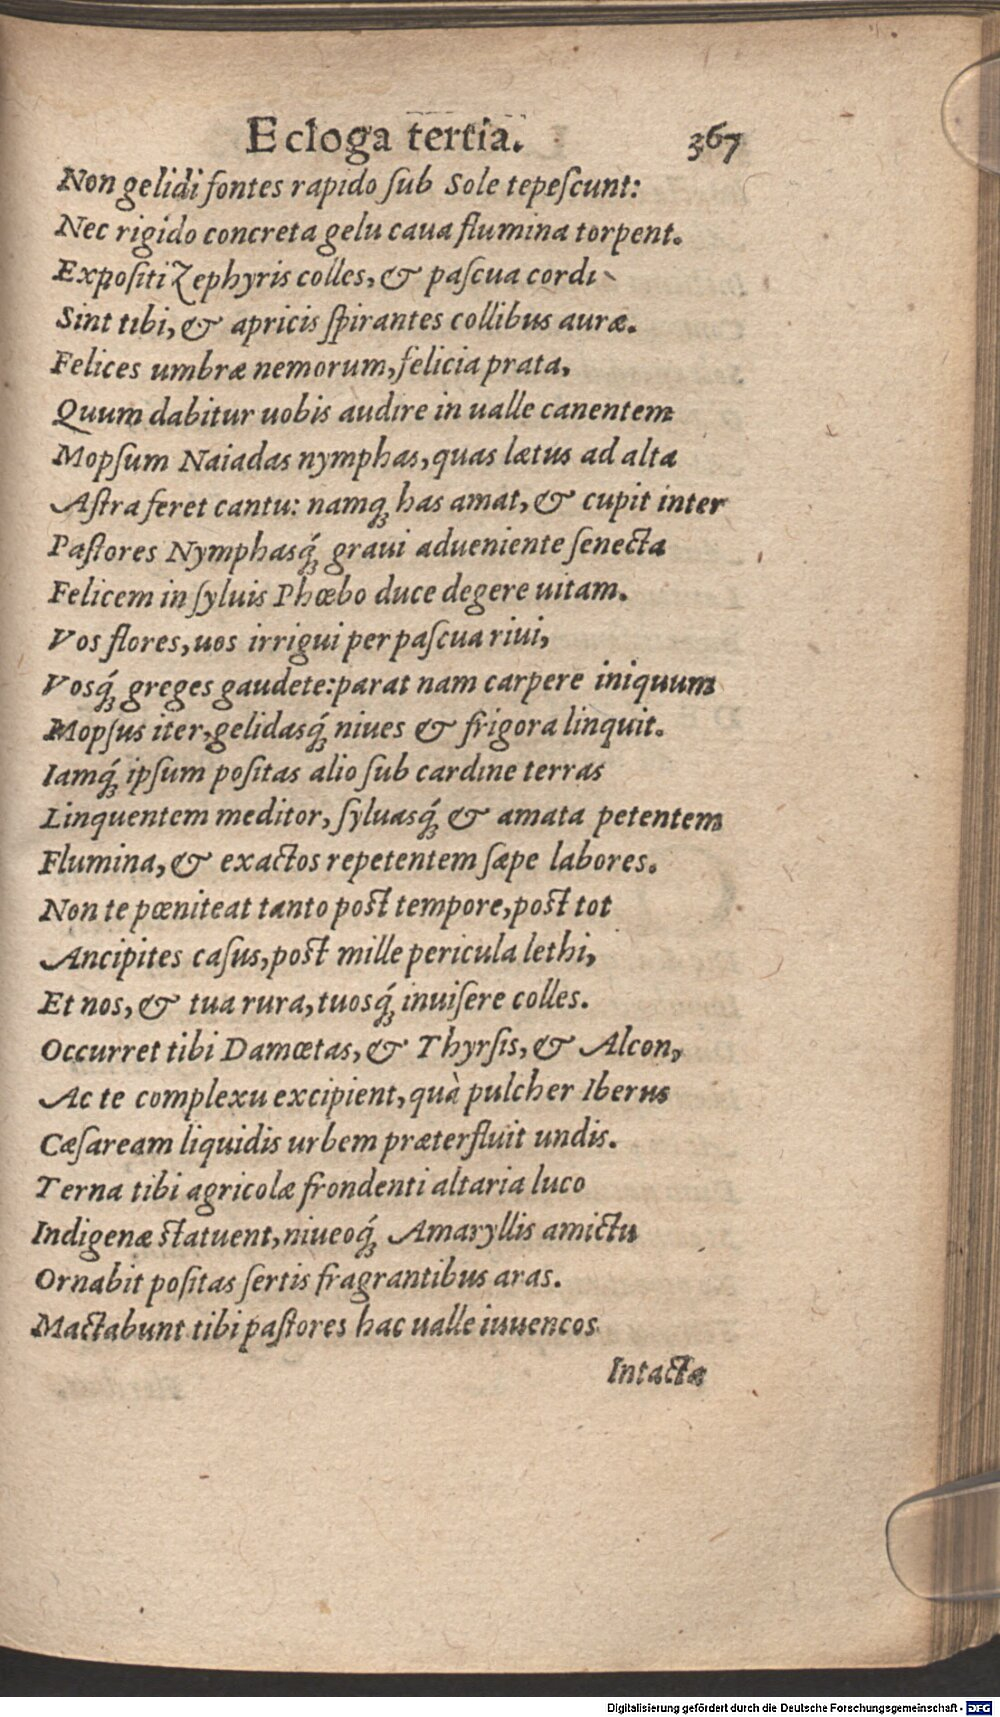 Ecloga tertia. 367
Non gelidi fontes rapido ſub Sole tepeſcunt:
Nec rigido concreta gelu caua flumina torpent.
Expoſiti Zephyris colles, & paſcua cordi
Sint tibi, & apricis ſpirantes collibus auræ.
Felices umbræ nemorum, felicia prata,
Quum dabitur uobis audire in ualle canentem
Mopſum Naiadas nymphas, quas lætus ad alta
Aſtra feret cantu: namq; has amat, & cupit inter
Paſtores Nymphasq́; graui adueniente ſenecta
Felicem in ſyluis Phœbo duce degere uitam.
Vos flores, uos irrigui per paſcua riui,
Vosq́; greges gaudete: parat nam carpere iniquum
Mopſus iter, gelidasq́; niues & frigora linquit.
Iamq́; ipſum poſitas alio ſub cardine terras
Linquentem meditor, ſyluasq́; & amata petentem
Flumina, & exactos repetentem ſæpe labores.
Non te pœniteat tanto poſt tempore, poſt tot
Ancipites caſus, poſt mille pericula lethi,
Et nos, & tua rura, tuosq́; inuiſere colles.
Occurret tibi Damœtas, & Thyrſis, & Alcon,
Ac te complexu excipient, quà pulcher Iberus
Cæſaream liquidis urbem præterfluit undis.
Terna tibi agricolæ frondenti altaria luco
Indigenæ ſtatuent, niueoq́; Amaryllis amictu
Ornabit poſitas ſertis fragrantibus aras.
Mactabunt tibi paſtores hac ualle iuuencos
Intacta
Digitalisierung gefördert durch die Deutsche Forschungsgemeinschaft - DFG